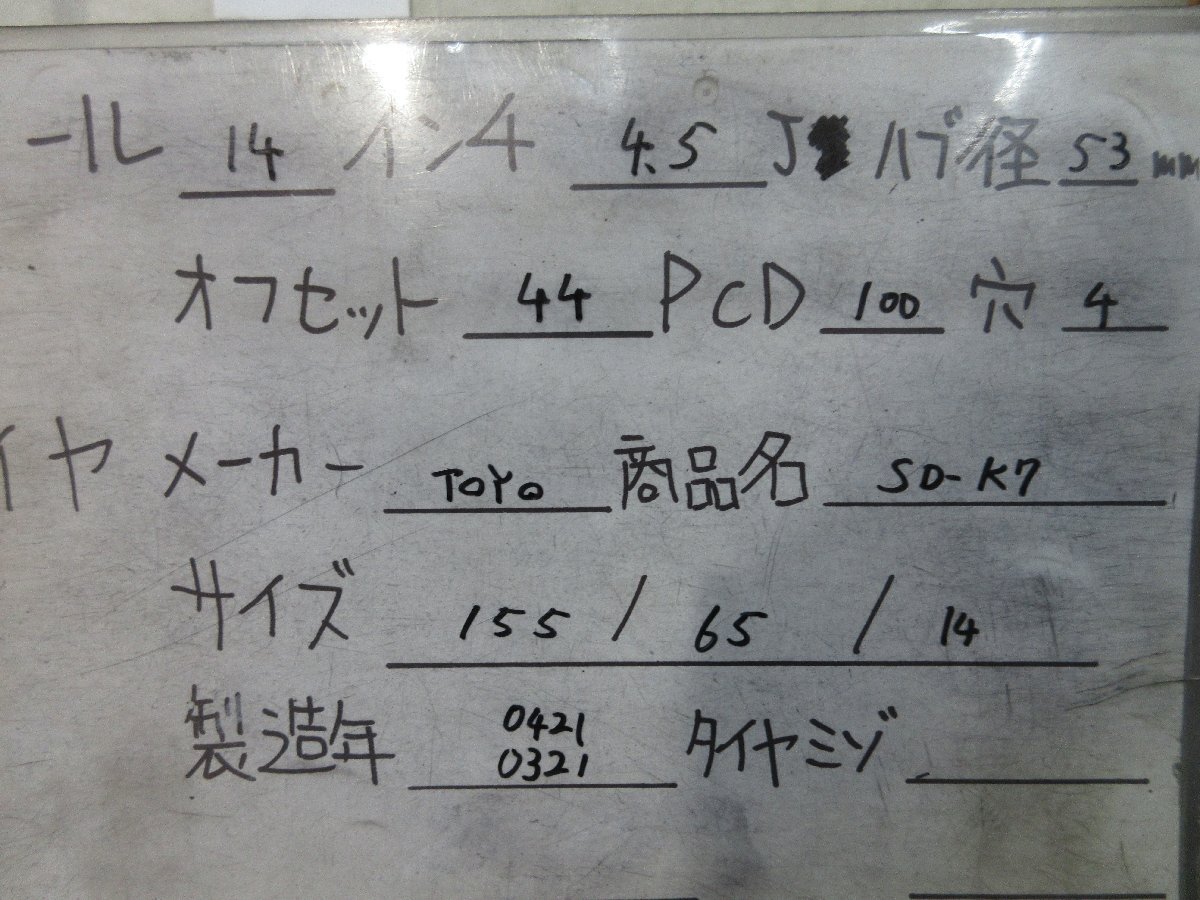 ール 14 インチ 4.5 J ハブ径 53 mm
オフセット 44 PCD 100 穴 4
イヤ メーカー TOYO 商品名 SD-K7
サイズ 155 / 65 / 14
製造年 0421 0321 タイヤミゾ